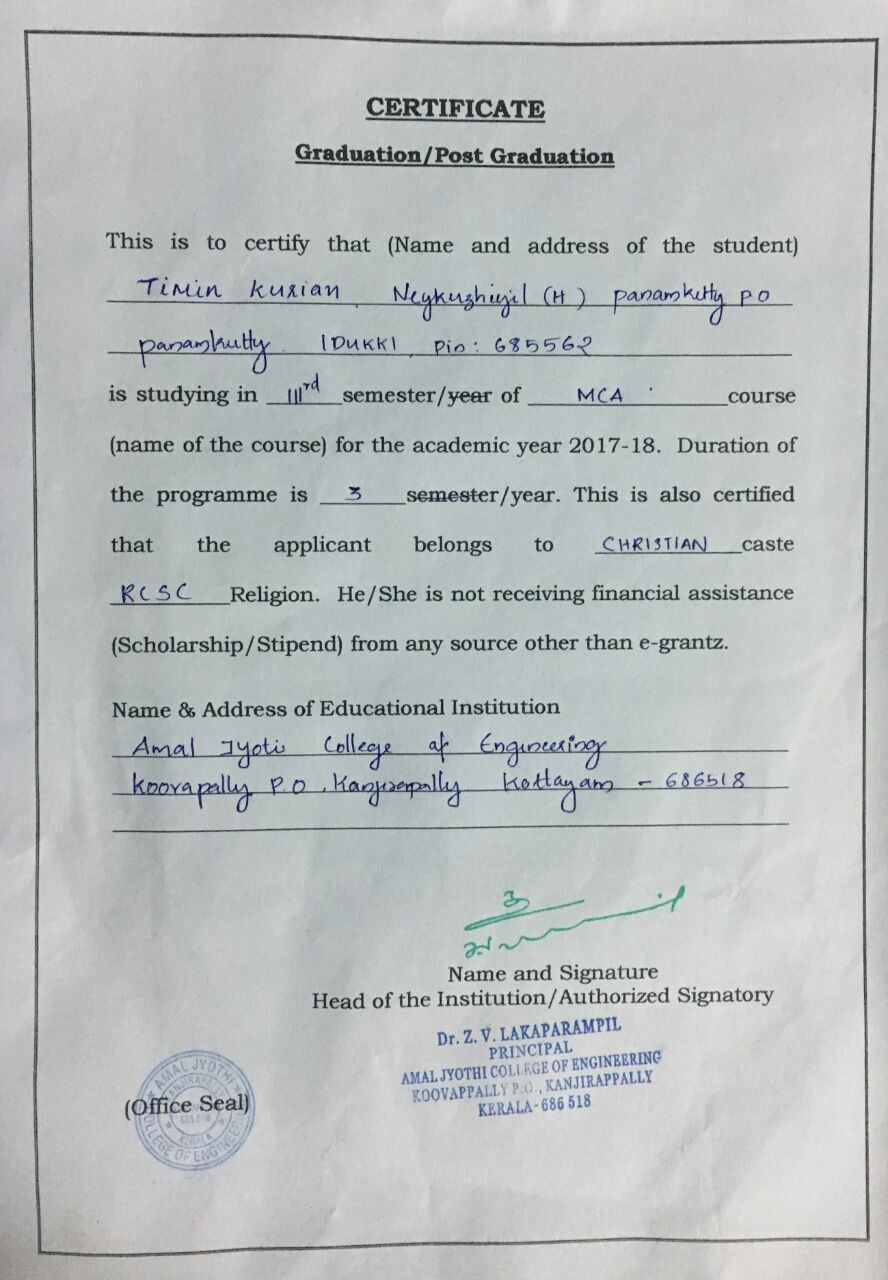 CERTIFICATE
Graduation/Post Graduation
This is to certify that (Name and address of the student)
Timin Kurian, Neykuzhiyil (H) panamkutty P O
panamkutty IDUKKI, Pin: 685562
is studying in IIIrd semester/year of MCA course
(name of the course) for the academic year 2017-18. Duration of
the programme is 3 semester/year. This is also certified
that the applicant belongs to CHRISTIAN caste
RCSC Religion. He/She is not receiving financial assistance
(Scholarship/Stipend) from any source other than e-grantz.
Name & Address of Educational Institution
Amal Jyoti College of Engineering
Koovapally P.O, Kanjirapally Kottayam - 686518
Name and Signature
Head of the Institution/Authorized Signatory
Dr. Z. V. LAKAPARAMPIL
PRINCIPAL
AMAL JYOTHI COLLEGE OF ENGINEERING
KOOVAPPALLY P.O., KANJIRAPPALLY
KERALA - 686 518
(Office Seal)
AMAL JYOTHI
COLLEGE OF ENGINEERING
KERALA